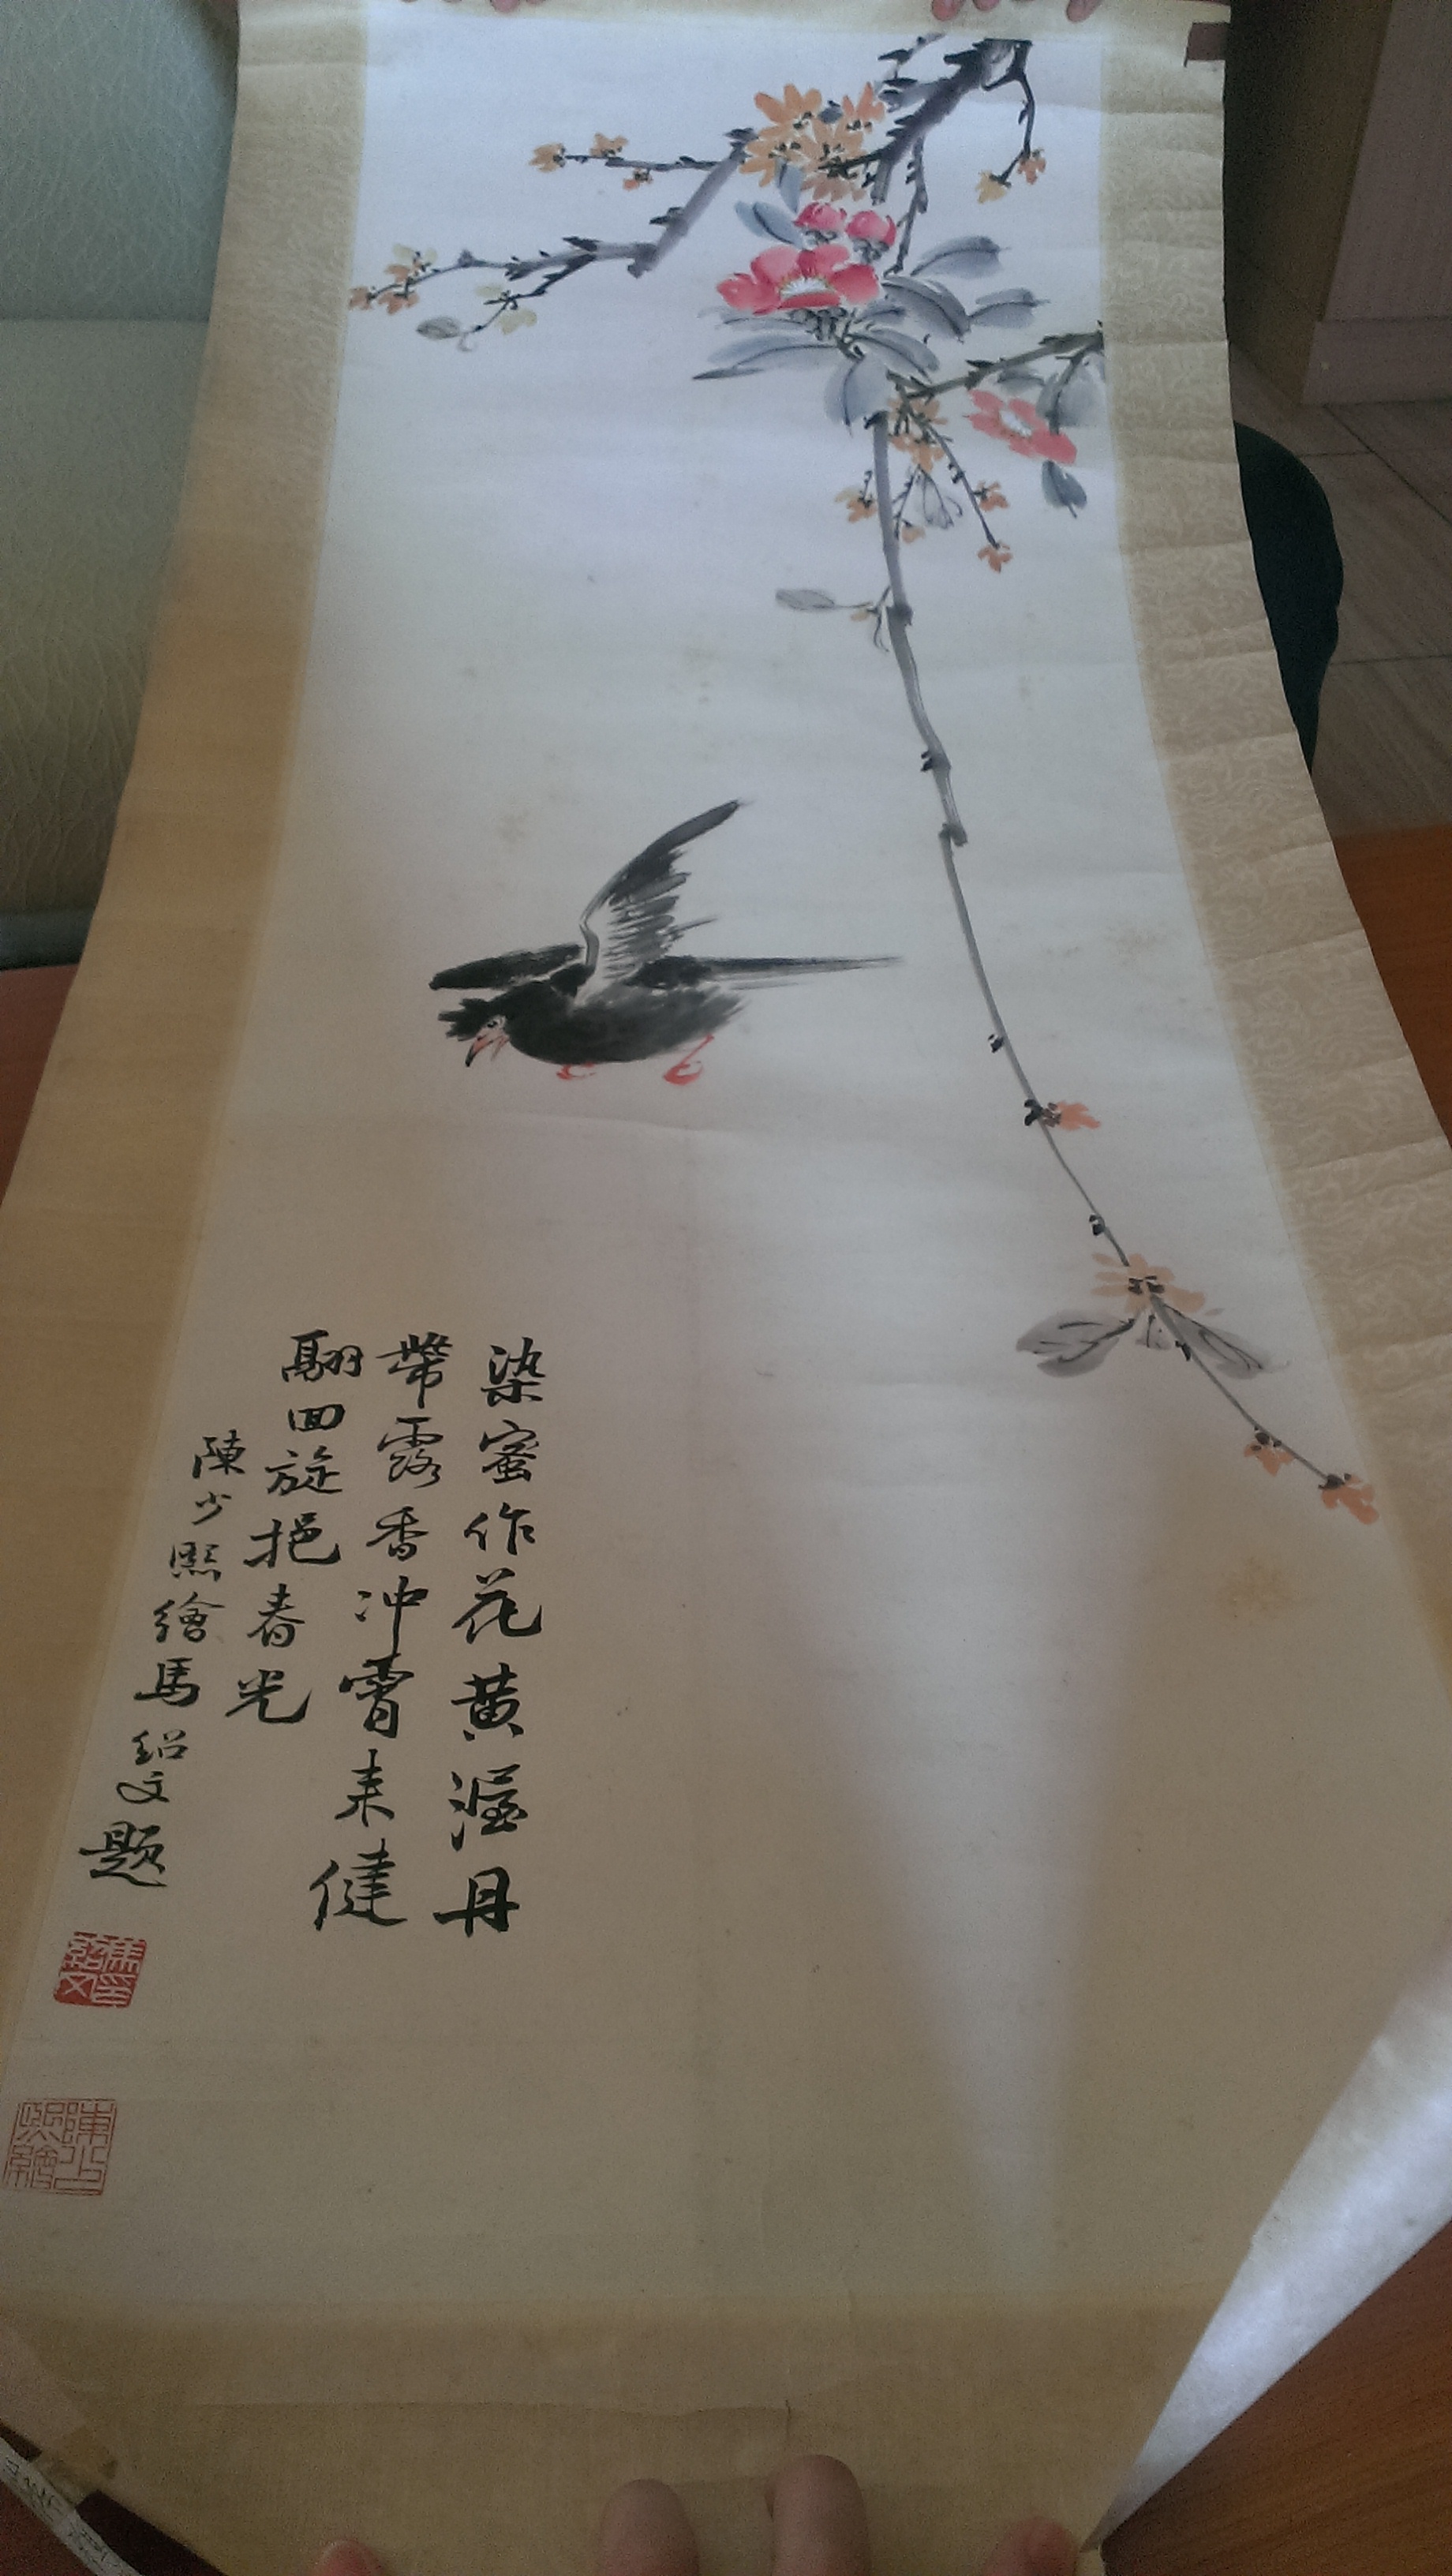 染蜜作花黄渥丹
帶露香冲霄来健
翮回旋挹春光
陳少熙繪馬紹文題
馬紹文印
陳少熙繪